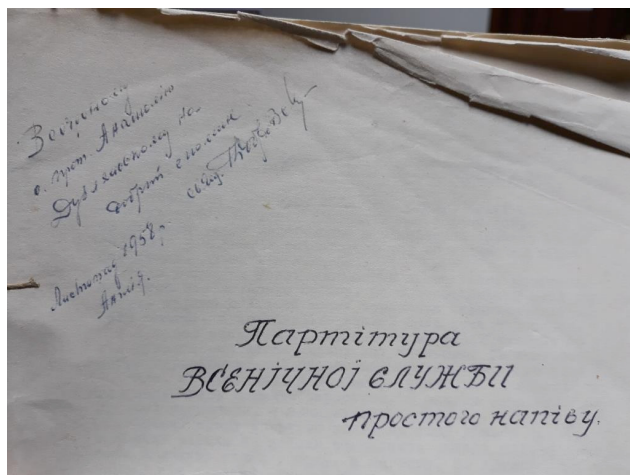 Всечесному
о. прот. Анатолію
Дублянському на
добрий спомин
свящ.
Листопад 1958 р.
Англія.
Партітура
ВСЕНІЧНОЇ СЛУЖБИ
простого напіву.